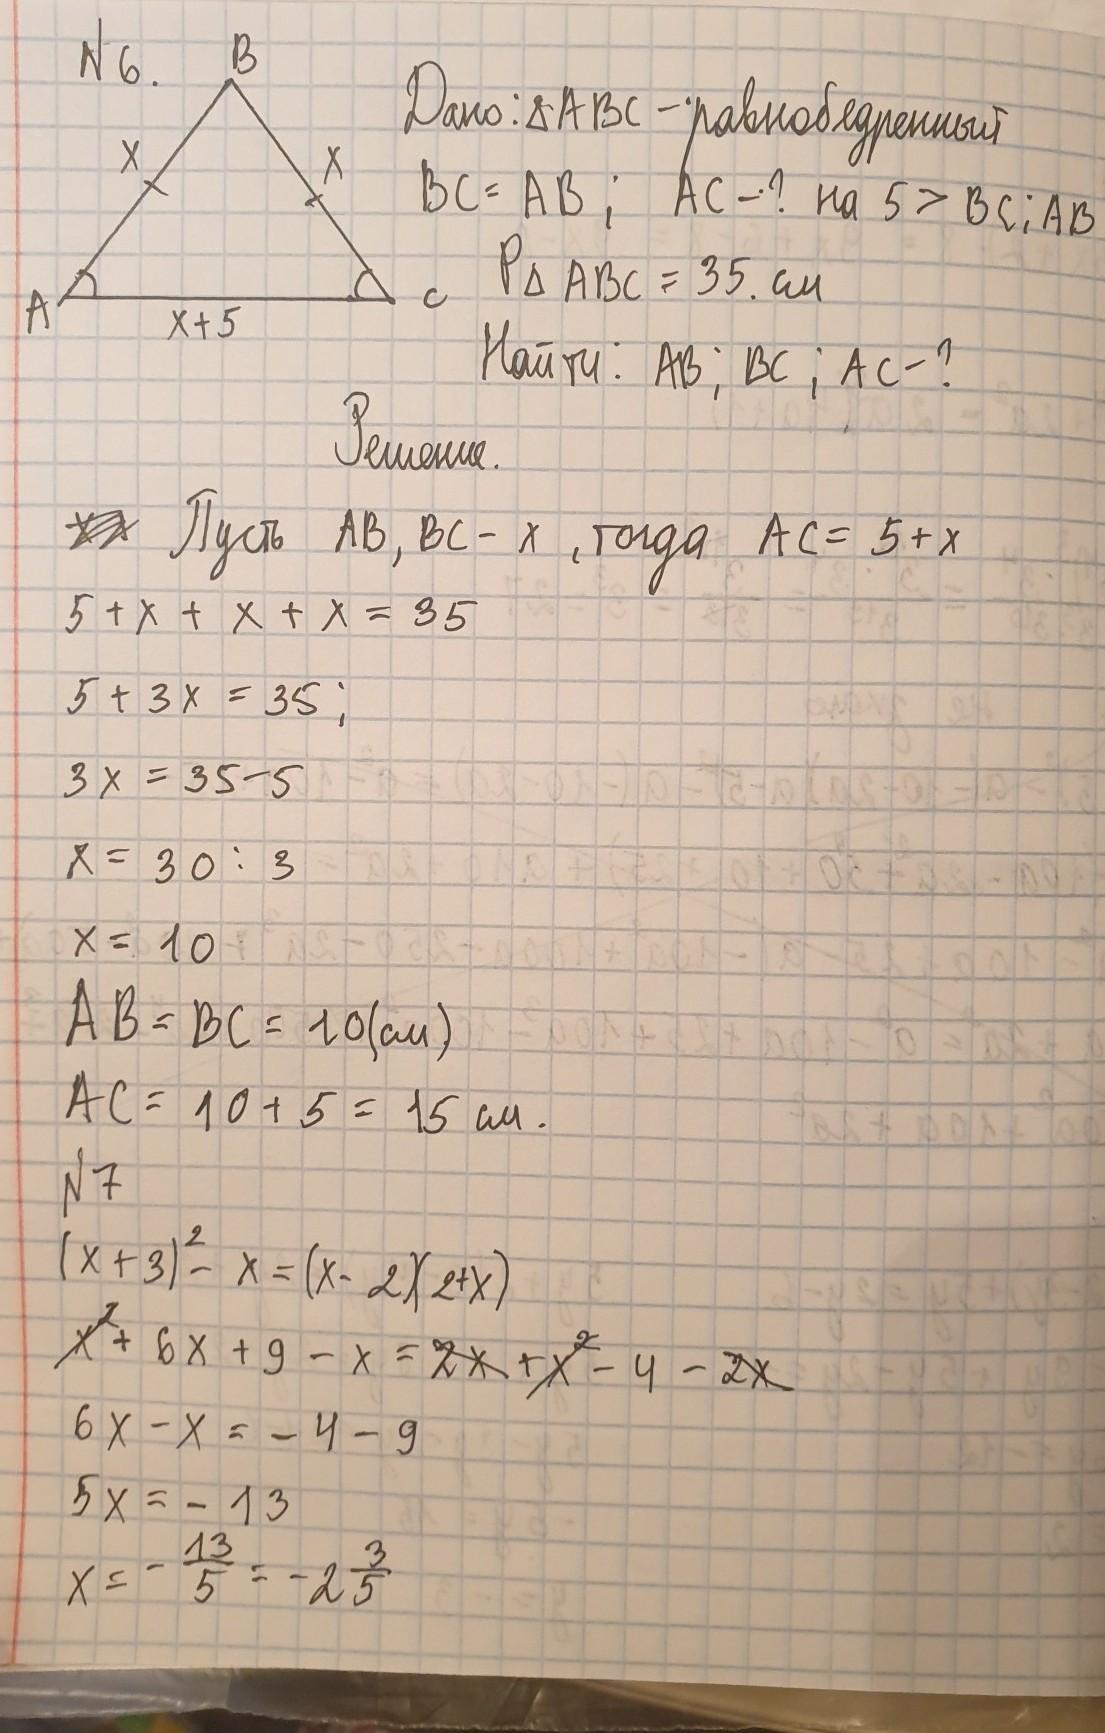 N6.
B
x x
A C
x+5
Дано: ΔABC - равнобедренный
BC = AB; AC-? на 5 > BC; AB
PΔ ABC = 35. см
Найти: AB; BC; AC-?
Решение.
Пусть AB, BC - x, тогда AC = 5+x
5 + x + x + x = 35
5 + 3x = 35;
3x = 35-5
x = 30 : 3
x = 10
AB = BC = 10(см)
AC = 10 + 5 = 15 см.
N7
(x+3)² - x = (x-2)(2+x)
x² + 6x + 9 - x = 2x + x² - 4 - 2x
6x - x = -4 - 9
5x = -13
x = -13/5 = -2 3/5